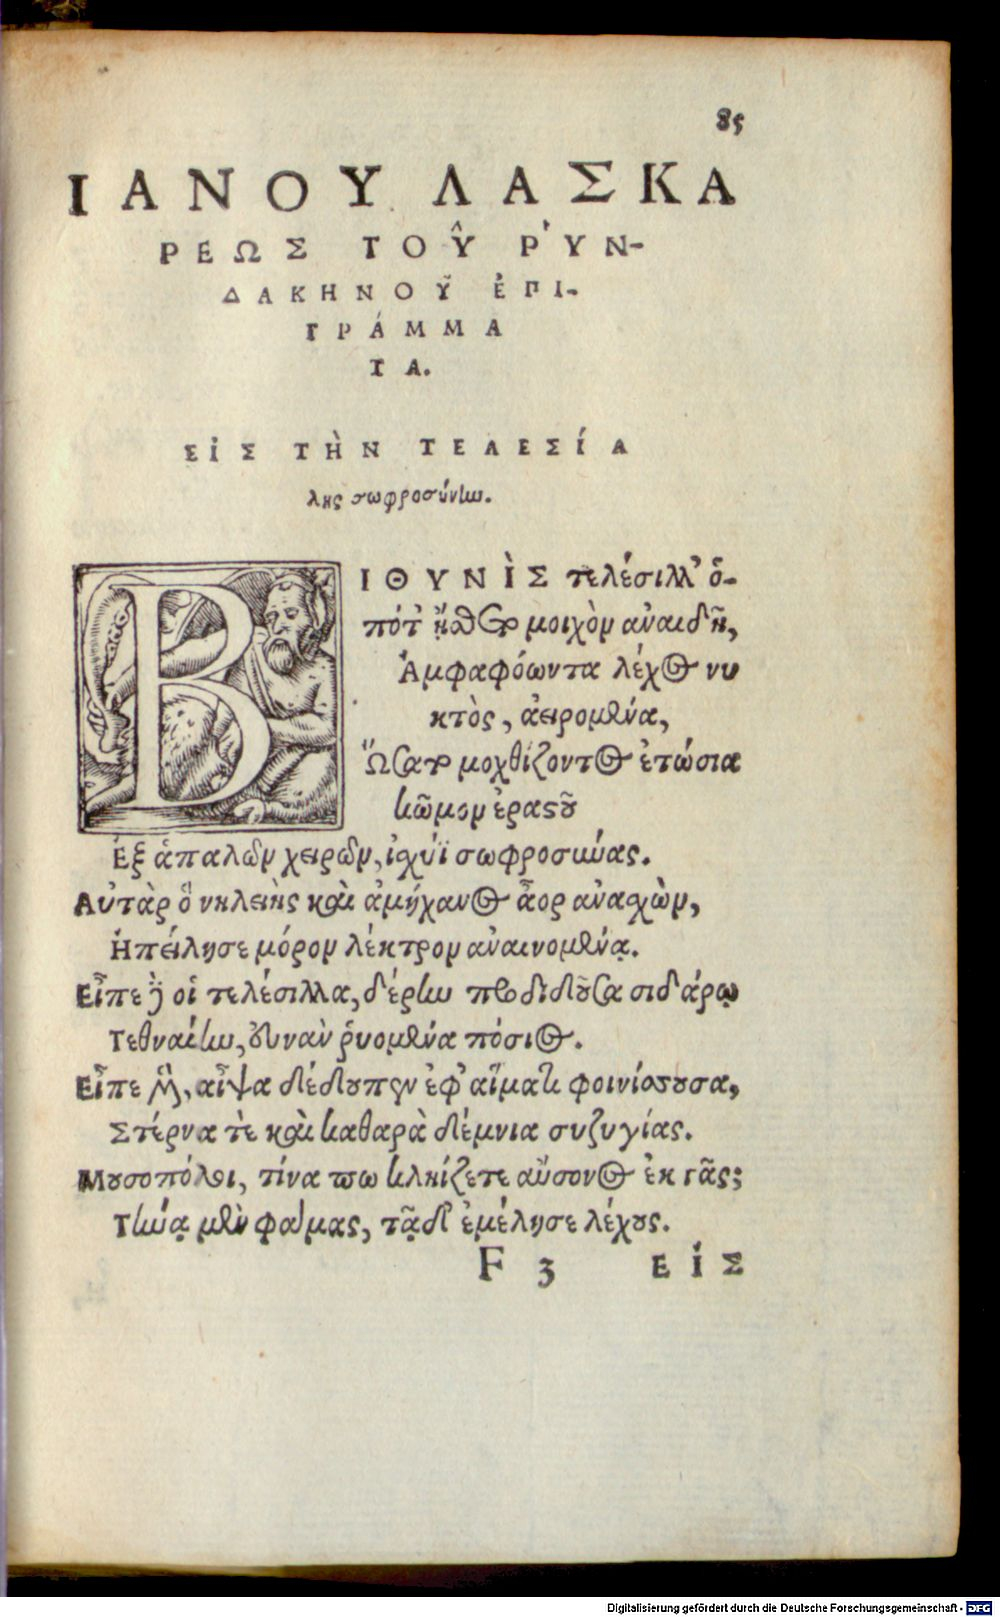 85
ΙΑΝΟΥ ΛΑΣΚΑ
ΡΕΩΣ ΤΟΥ͂ ΡʽΥΝ-
ΔΑΚΗΝΟΥ͂ ἘΠΙ-
ΓΡΆΜΜΑ
ΤΑ.
ΕἸΣ ΤῊΝ ΤΕΛΕΣΊΛ
λης σωφροσύνην.
ΒΙΘΥΝῚΣ τελέσιλλ’ ὁ-
πότ’ ᾔσθετο μοιχὸν ἀναιδῆ,
Ἀμφαφόωντα λέχος νυ
κτὸς, ἀειρομένα,
Ὤσατο μοχθίζοντος ἐτώσια
κῶμον ἐραστοῦ
Ἐξ ἁπαλῶν χειρῶν, ἰσχύϊ σωφροσύνας.
Αὐτὰρ ὃ νηλειὴς καὶ ἀμήχανος ἆορ ἀνασχὼν,
Ἠπείλησε μόρον λέκτρον ἀναινομένᾳ.
Εἶπε δέ οἱ τελέσιλλα, δέρην προδιδοῦσα σιδάρῳ
Τεθναίην, εὐνὰν ῥυομένα πόσιος.
Εἶπε μὲν, αἶψα δέδουπεν ἐφ’ αἵματι φοινίσσουσα,
Στέρνα τὲ καὶ καθαρὰ δέμνια συζυγίας.
Μουσοπόλοι, τίνα πω κληίζετε αὔσονος ἐκ γᾶς;
Τήνᾳ μὲν φάμας, τᾷδ’ ἐμέλησε λέχους.
F 3 ΕἸΣ
Digitalisierung gefördert durch die Deutsche Forschungsgemeinschaft - DFG